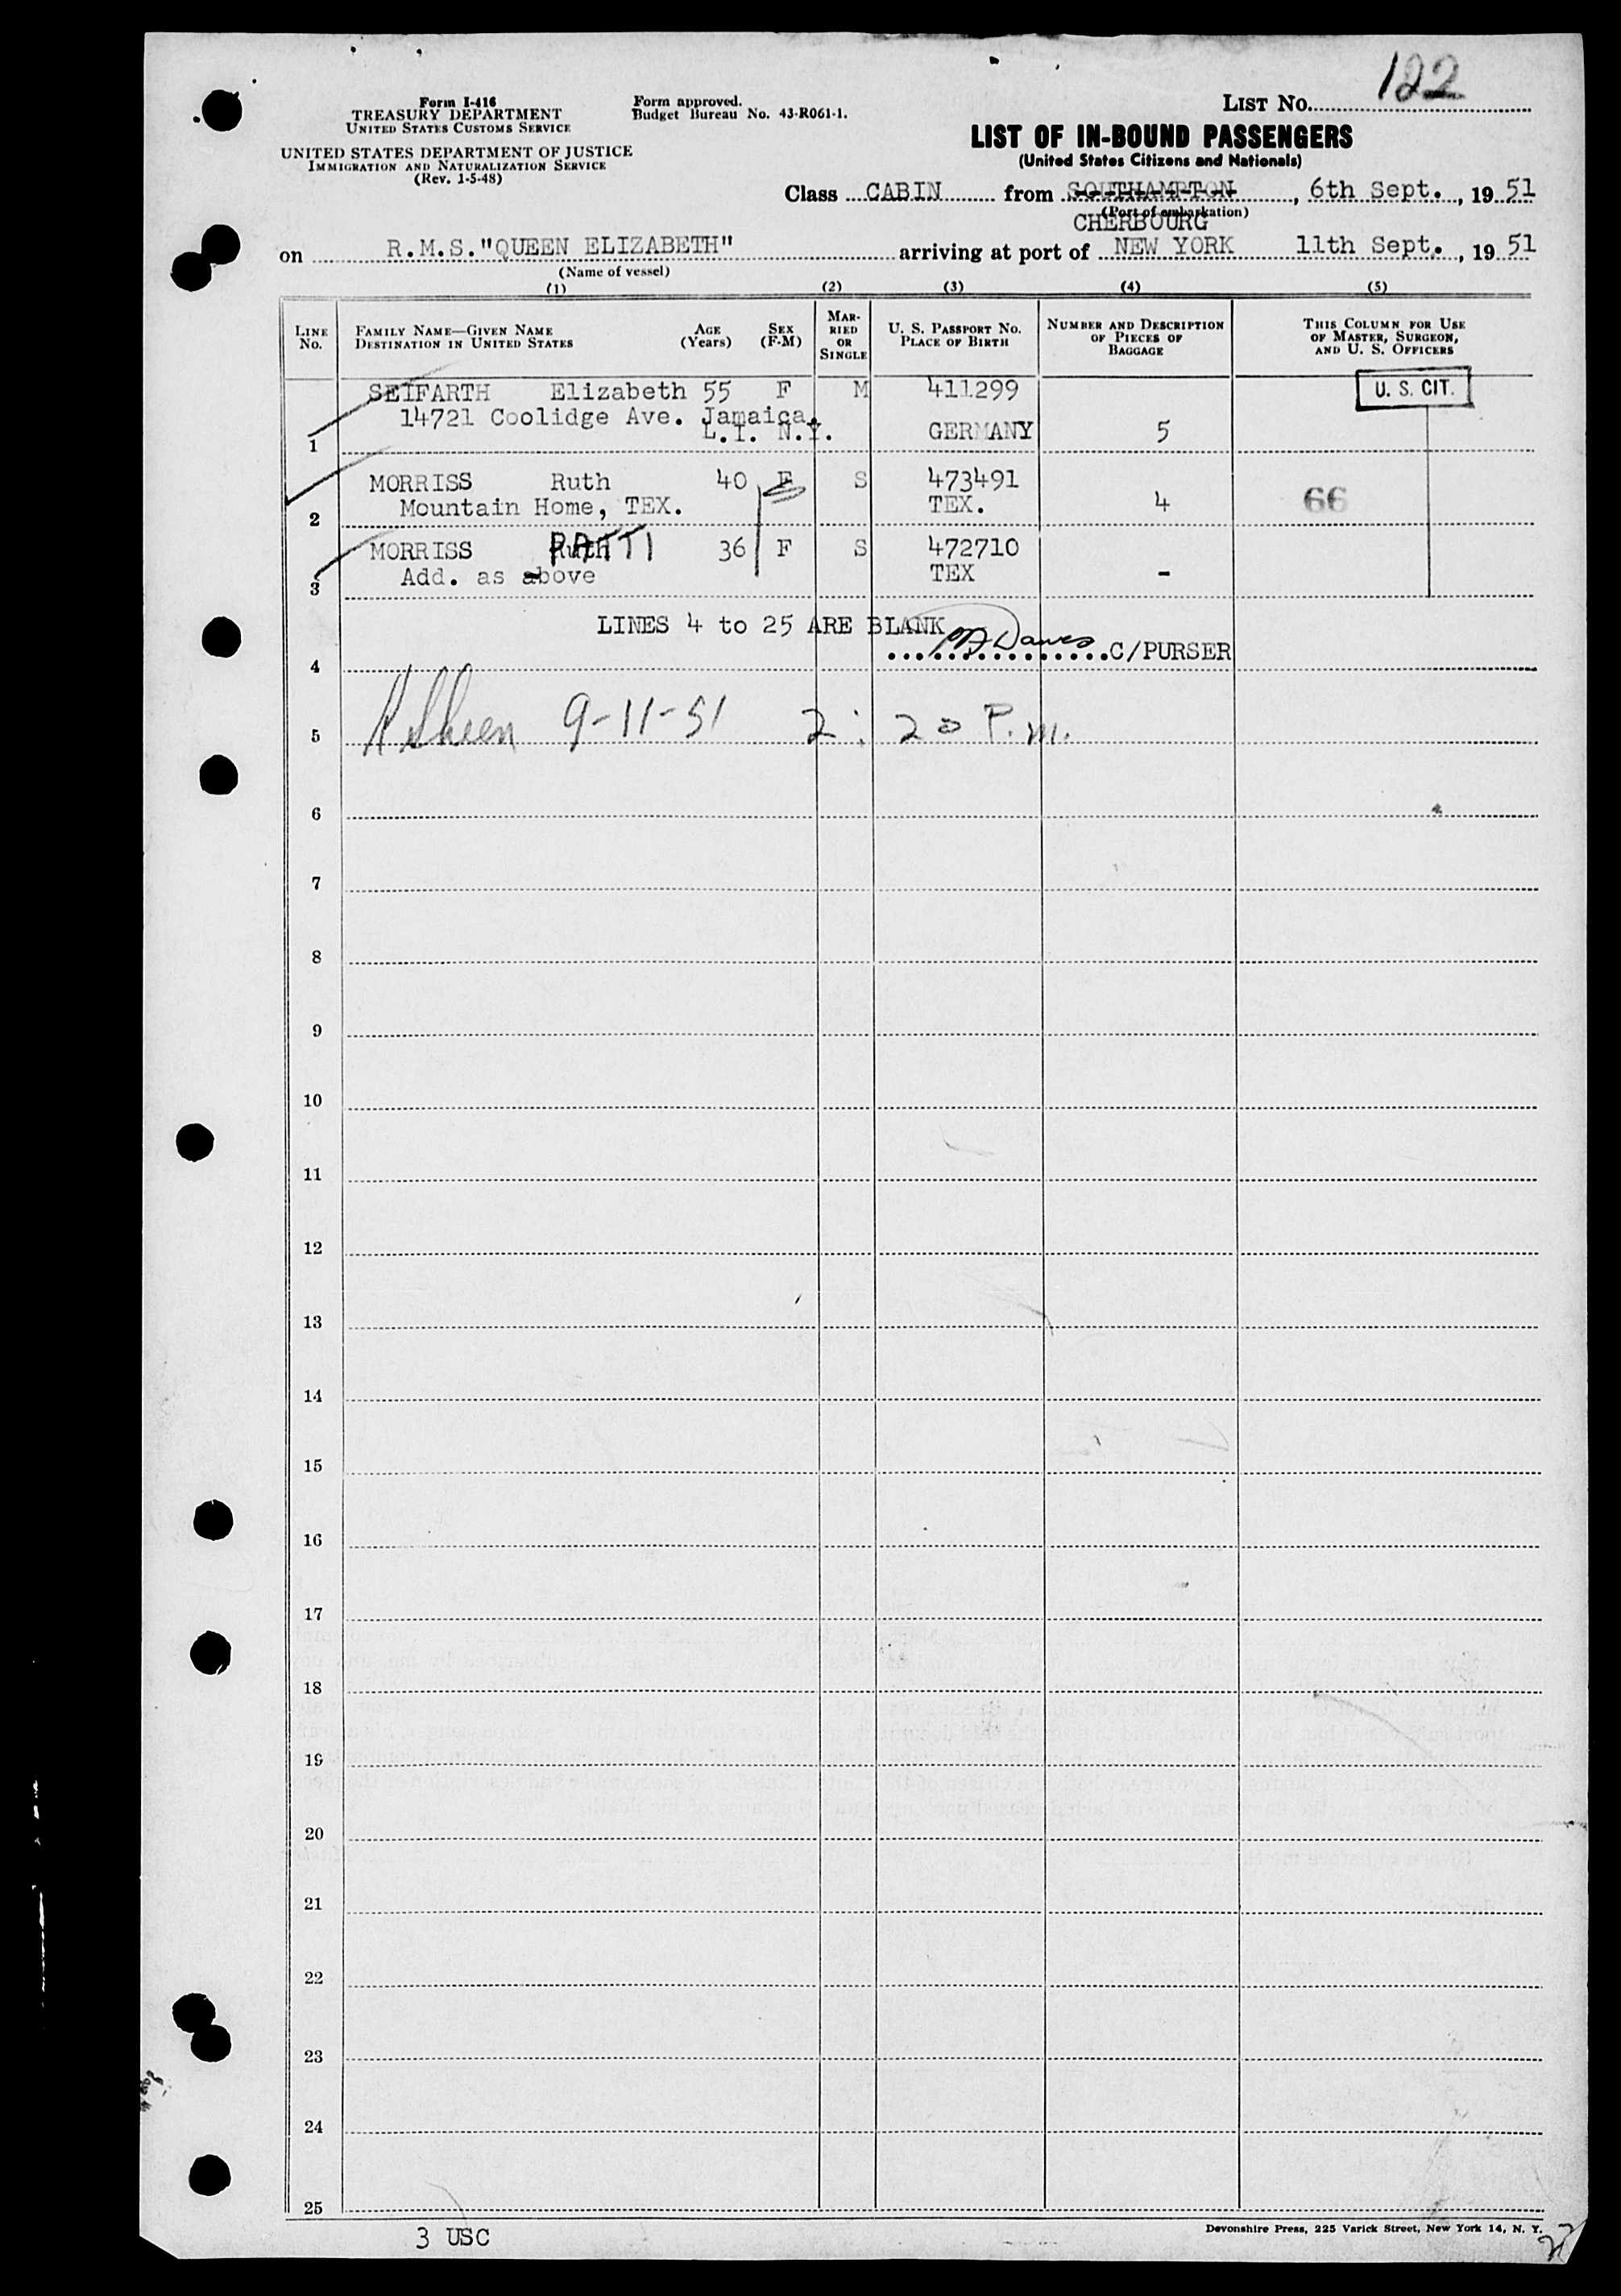 LIST No. 122
Form I-416
TREASURY DEPARTMENT
UNITED STATES CUSTOMS SERVICE
Form approved.
Budget Bureau No. 43-R061-1.
UNITED STATES DEPARTMENT OF JUSTICE
IMMIGRATION AND NATURALIZATION SERVICE
(Rev. 1-5-48)
LIST OF IN-BOUND PASSENGERS
(United States Citizens and Nationals)
Class CABIN from SOUTHAMPTON, 6th Sept., 1951
(Port of embarkation)
CHERBOURG
on R.M.S."QUEEN ELIZABETH" arriving at port of NEW YORK 11th Sept., 1951
(Name of vessel)
(1) (2) (3) (4) (5)
LINE No. FAMILY NAME—GIVEN NAME DESTINATION IN UNITED STATES AGE (Years) SEX (F-M) MARRIED OR SINGLE U. S. PASSPORT No. PLACE OF BIRTH NUMBER AND DESCRIPTION OF PIECES OF BAGGAGE THIS COLUMN FOR USE OF MASTER, SURGEON, AND U. S. OFFICERS
SEIFARTH Elizabeth 55 F M 411299 U. S. CIT.
14721 Coolidge Ave. Jamaica,
1 L.I. N.Y. GERMANY 5
MORRISS Ruth 40 F S 473491
2 Mountain Home, TEX. TEX. 4 66
MORRISS Ruth PATTI 36 F S 472710
3 Add. as above TEX -
LINES 4 to 25 ARE BLANK
4 Dawes C/PURSER
5 9-11-51 2:20 P.m.
6
7
8
9
10
11
12
13
14
15
16
17
18
19
20
21
22
23
24
25
3 USC
Devonshire Press, 225 Varick Street, New York 14, N. Y.